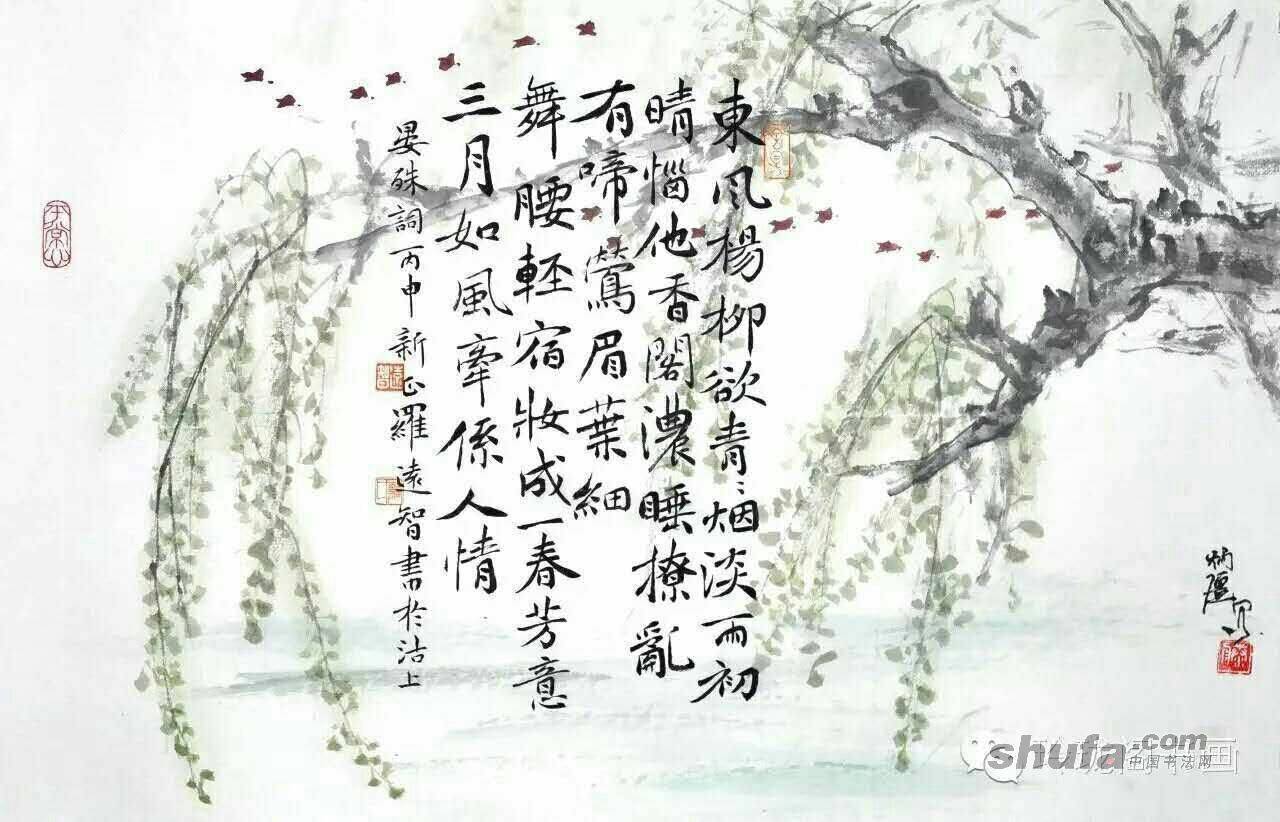 東風楊柳欲青青烟淡雨初
晴惱他香閣濃睡撩亂
有啼鶯眉葉細
舞腰輕宿妝成一春芳意
三月如風牽係人情
晏殊詞丙申新正羅遠智書於沽上
shufa.com
中国书法网